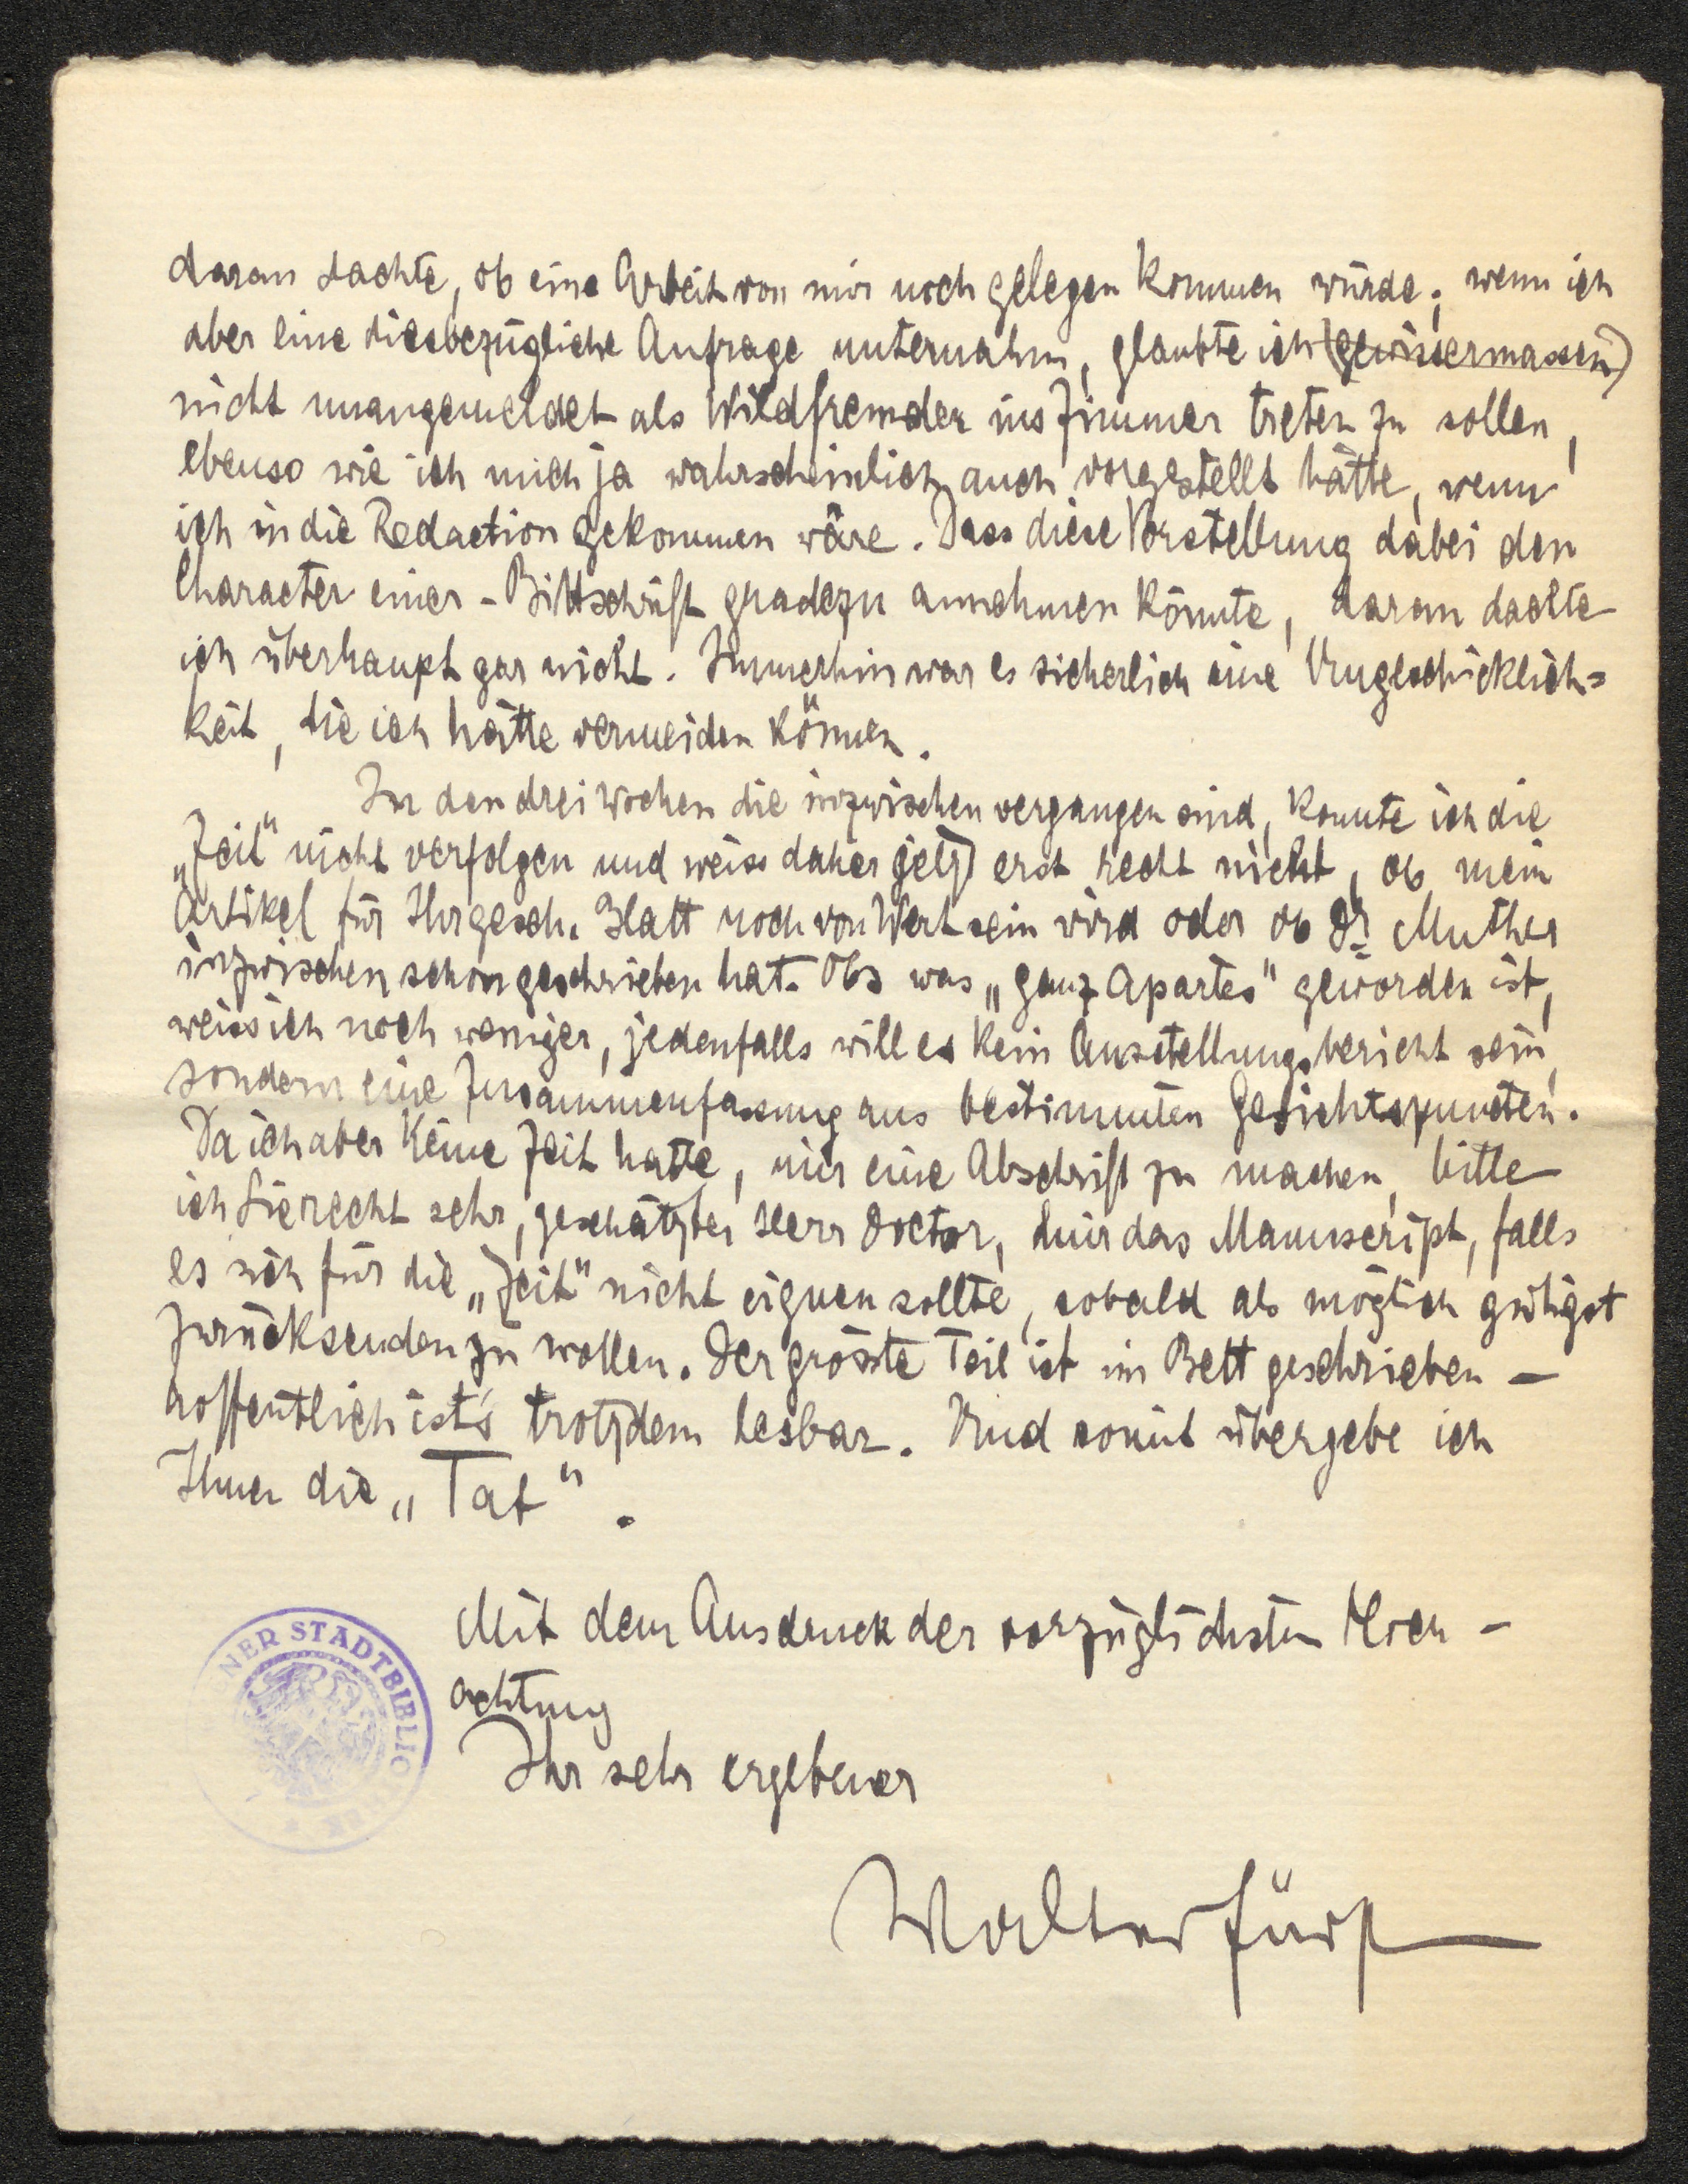 daran dachte, ob eine Arbeit von mir noch gelegen kommen würde; wenn ich
aber eine diesbezügliche Anfrage unternahm, glaubte ich (gewissermassen)
nicht unangemeldet als Wildfremder ins Zimmer treten zu sollen,
ebenso wie ich mich ja wahrscheinlich auch vorgestellt hätte, wenn
ich in die Redaction gekommen wäre. Dass diese Vorstellung dabei den
Character einer - Bittschrift gradezu annehmen könnte, daran dachte
ich überhaupt gar nicht. Immerhin war es sicherlich eine Ungeschicklich=
keit, die ich hätte vermeiden können.
In den drei Wochen die inzwischen vergangen sind, konnte ich die
„Zeit" nicht verfolgen und weiss daher jetzt erst recht nicht, ob mein
Artikel für Ihr gesch. Blatt noch von Wert sein wird oder ob Dr. Muther
inzwischen schon geschrieben hat. Obs was „ganz Apartes" geworden ist,
weiss ich noch weniger, jedenfalls will es kein Ausstellungsbericht sein,
sondern eine Zusammenfassung aus bestimmten Gesichtspuncten.
Da ich aber keine Zeit hatte, mir eine Abschrift zu machen, bitte
ich Sie recht sehr, geschätzter Herr Doctor, mir das Manuscript, falls
es sich für die „Zeit" nicht eignen sollte, sobald als möglich gütigst
zurücksenden zu wollen. Der grösste Teil ist im Bett geschrieben —
hoffentlich ist's trotzdem lesbar. Und somit übergebe ich
Ihnen die „Tat".
Mit dem Ausdruck der vorzüglichsten Hoch -
achtung
Ihr sehr ergebener
Walter Fürst
NER STADTBIBLIOTHEK